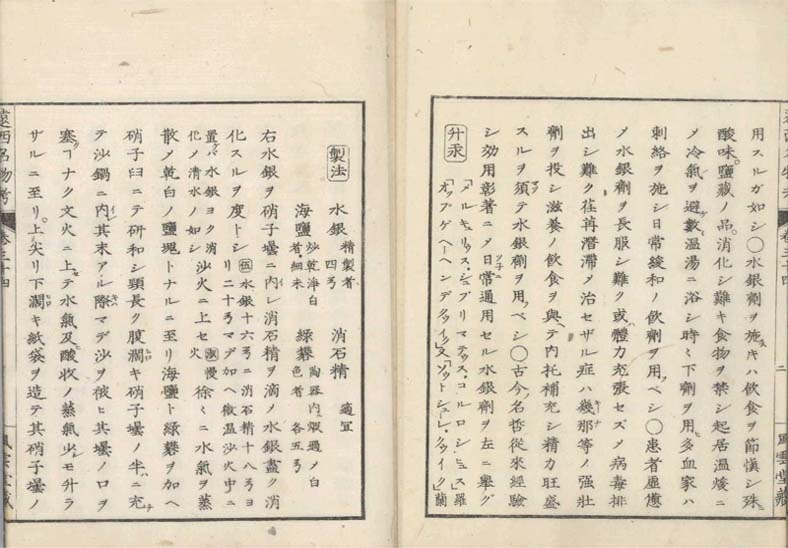 遠西名物考
二
風雲堂藏
用スルガ如シ〇水銀劑ヲ施スキハ飲食ヲ節慎シ殊ニ
酸味鹽藏ノ品消化シ難キ食物ヲ禁シ起居溫煖ニ
メ冷氣ヲ避ケ數溫湯ニ浴シ時々下劑ヲ用ヒ多血家ハ
刺絡ヲ施シ日常緩和ノ飲劑ヲ用フベシ〇患者虛憊
メ水銀劑ヲ長服シ難ク或ハ體力充張セズメ病毒排
出シ難ク荏苒潛滯メ治セザル症ハ幾那等ノ強壯
劑ヲ投シ滋養ノ飲食ヲ與テ內托補充シ精力旺盛
スルヲ須テ水銀劑ヲ用フベシ〇古今ノ名哲從來經驗
シ効用彰著ニメ日常通用セル水銀劑ヲ左ニ擧グ
升汞
「メルキュリュス、シュブリマテュス、コルロシヒュス」羅
「オップゲヘーヘン、デクウイッキ」又「ソウト、シュレ、クウイッキ」蘭
製法
水銀 精製者 四ヲ 消石精 適宜
海鹽 炒乾淨白者細末 綠礬 陶器內煅過メ白色者 各五ヲ
右水銀ヲ硝子壜ニ內レ消石精ヲ滴メ水銀盡ク消
化スルヲ度トシ 伍水銀十六ヲニ消石精十八ヲヨリ二十ヲマデ加ヘ微溫沙火中ニ
置ケバ水銀ヨク消化メ淸水ノ如シ 沙火ニ上セ 火候慢火 徐々ニ水氣ヲ蒸
散メ乾白ノ鹽塊トナルニ至リ海鹽ト綠礬ヲ加ヘ
硝子臼ニテ硏和シ頸長ク腹濶キ硝子壜ノ半ニ充
テ沙鍋ニ內其末アル際マデ沙ヲ被ヒ其壜ノ口ヲ
塞コナク文火ニ上テ水氣及ビ酸收ノ蒸氣少モ升ラ
サルニ至リ上尖リ下濶キ紙袋ヲ造テ其硝子壜ノ
遠西名物考
卷三十四
風雲堂藏